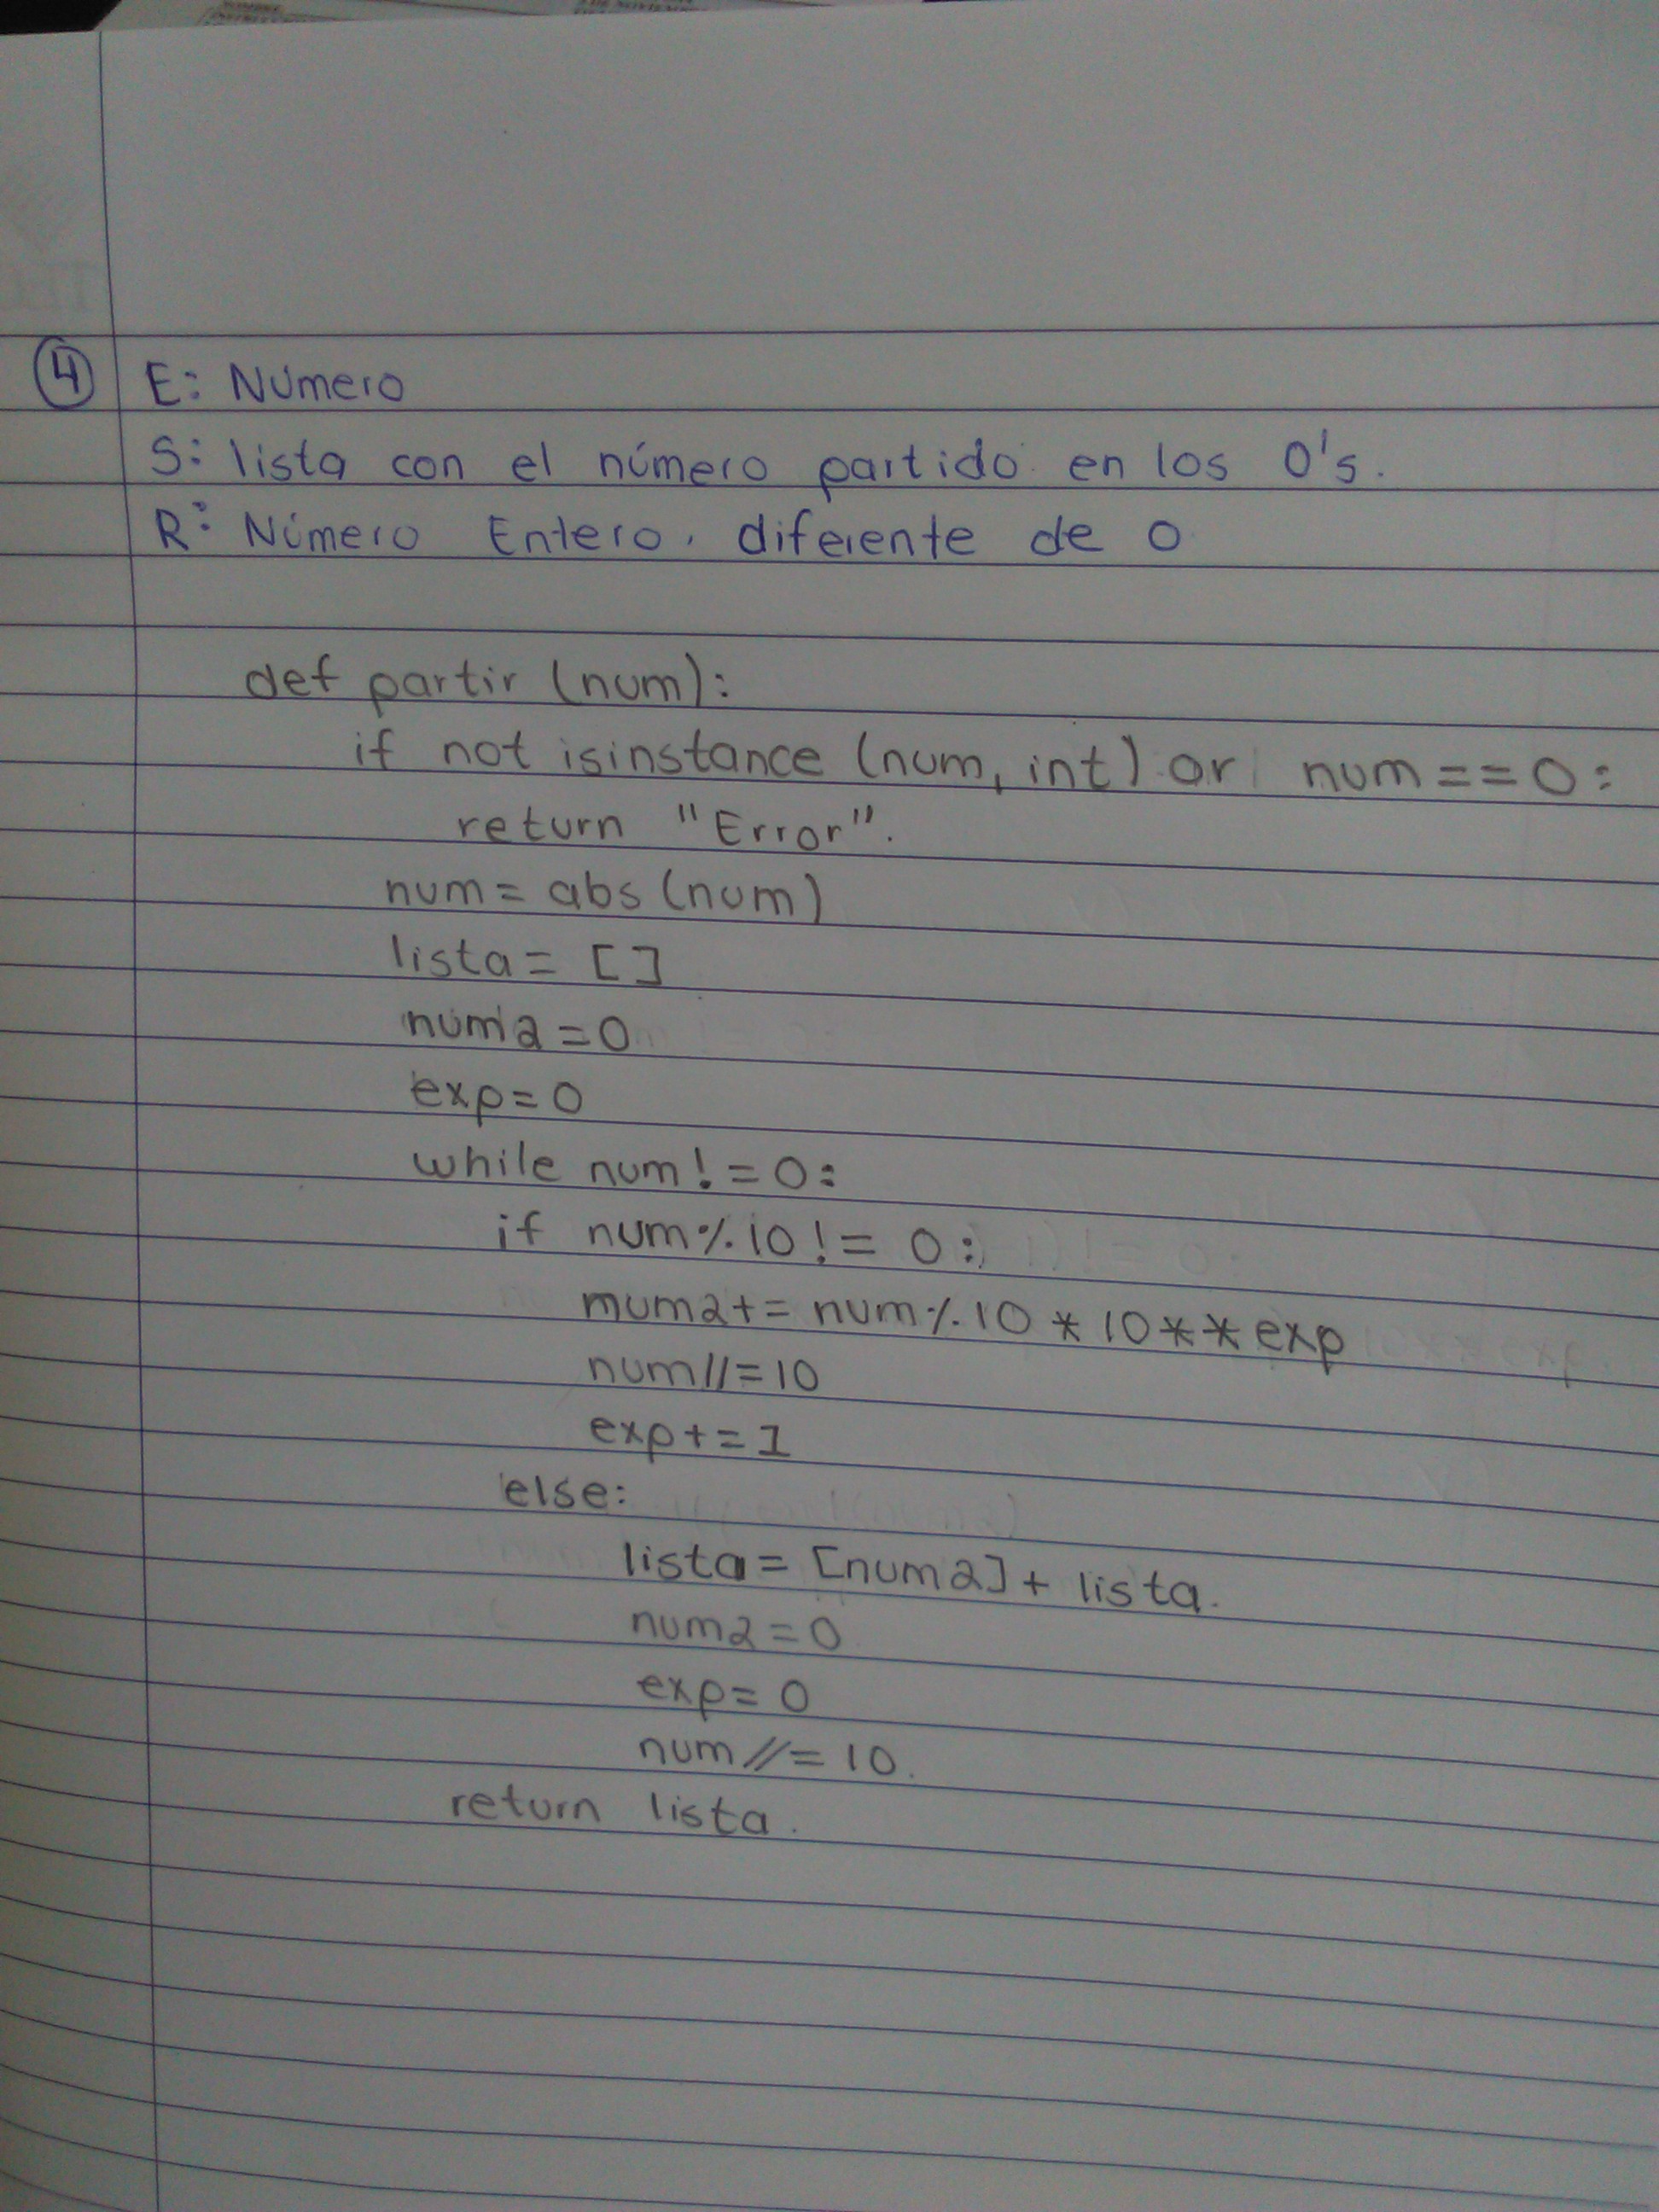 4 E: Número
S: lista con el número partido en los 0's.
R: Número Entero, diferente de 0
def partir (num):
if not isinstance (num, int) or num == 0:
return "Error".
num = abs (num)
lista = [ ]
num2 = 0
exp = 0
while num != 0:
if num % 10 != 0:
num2 += num % 10 * 10 ** exp
num // = 10
exp += 1
else:
lista = [num2] + lista.
num2 = 0
exp = 0
num // = 10.
return lista.